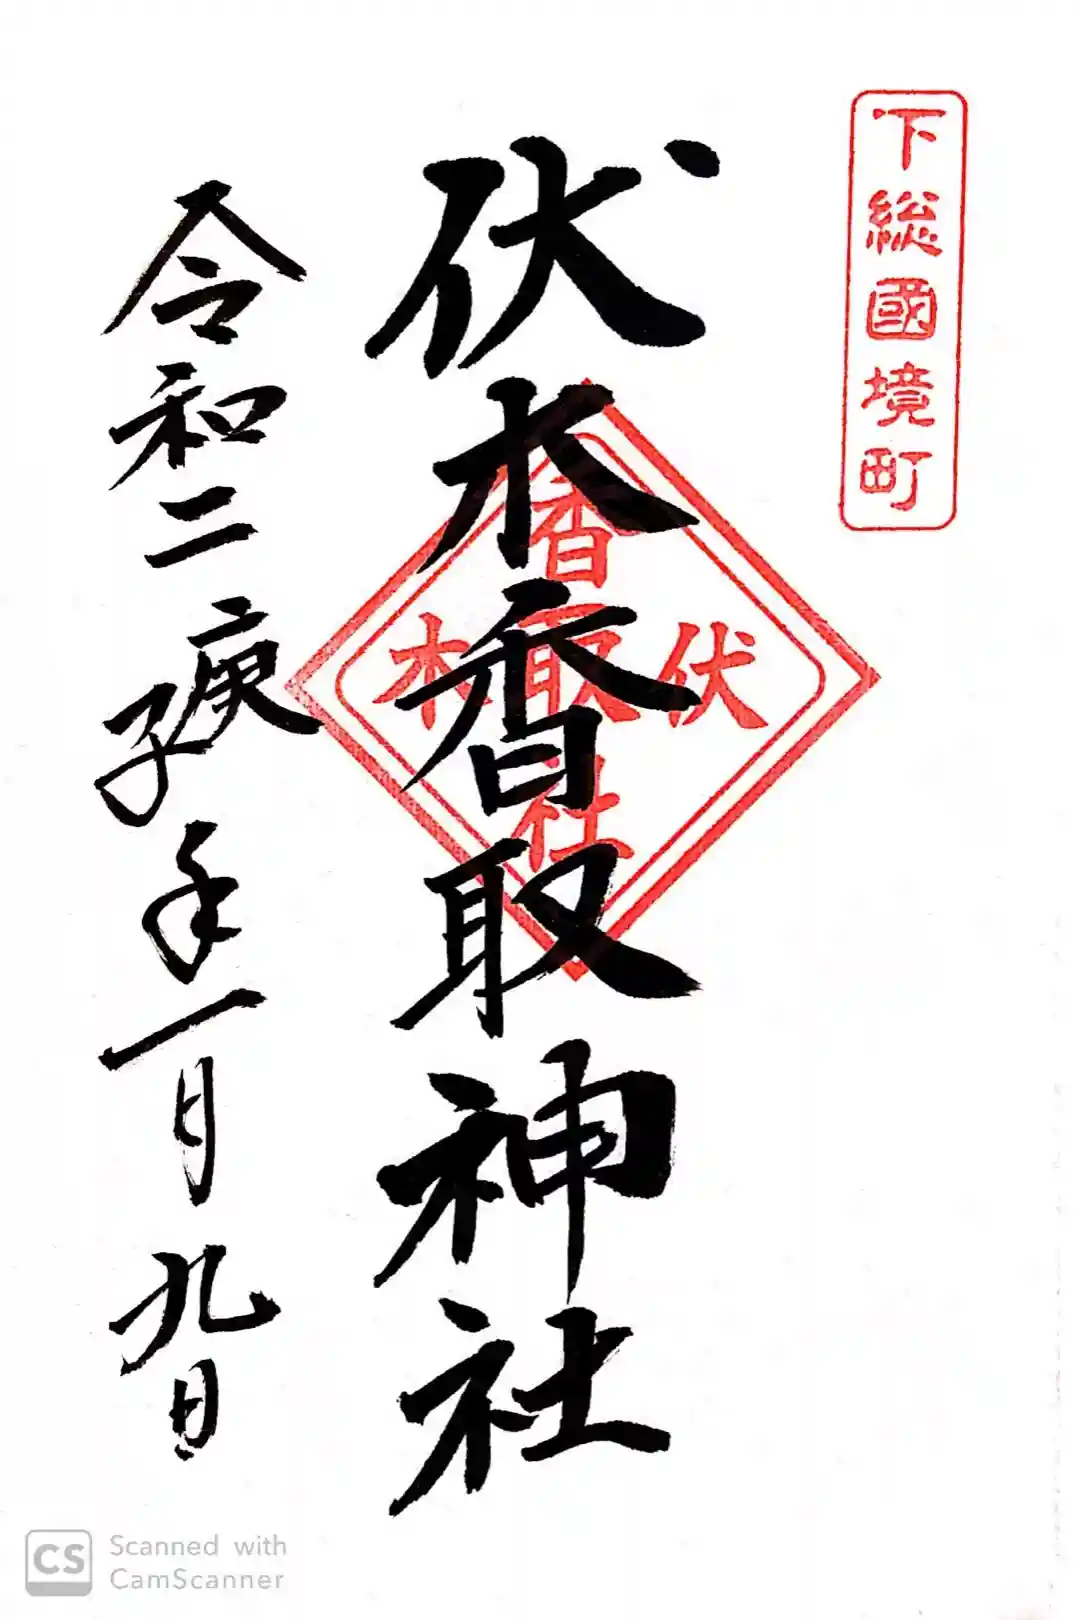 下総國境町
伏木香取神社
伏木
香取社
令和二庚子年一月九日
CS Scanned with
CamScanner